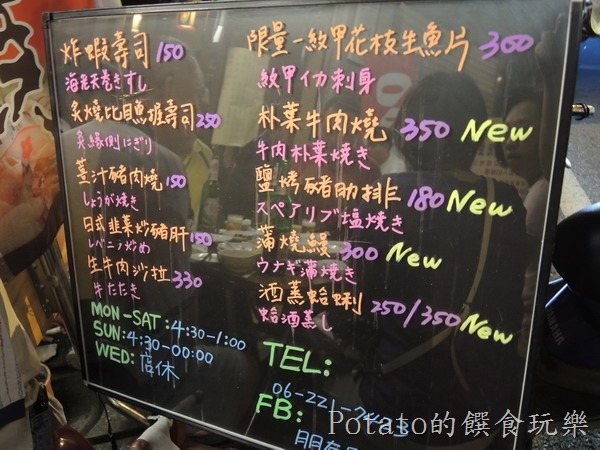 炸蝦壽司 150
海老天巻きすし
炙燒比目魚握壽司 250
炙縁側にぎり
薑汁豬肉燒 150
しょうが焼き
日式韭菜炒豬肝 150
レバニラ炒め
生牛肉沙拉 330
牛たたき
MON-SAT:4:30-1:00
SUN:4:30-00:00
WED:店休
限量-紋甲花枝生魚片 300
紋甲イカ刺身
朴葉牛肉燒 350 New
牛肉朴葉焼き
鹽烤豬肋排 180 New
スペアリブ塩焼き
蒲燒鰻 300 New
ウナギ蒲焼き
酒蒸蛤蜊 250/350 New
蛤酒蒸し
TEL:
06-221-
FB:
Potato的饌食玩樂